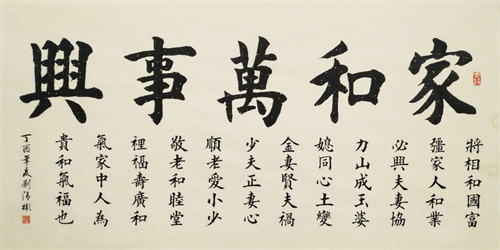 家和萬事興
將相和國富
彊家人和業
必興夫妻協
力山成玉婆
媳同心土變
金妻賢夫禍
少夫正妻心
順老愛小少
敬老和睦堂
裡福壽廣和
氣家中人為
貴和氣福也
丁酉年夏劉